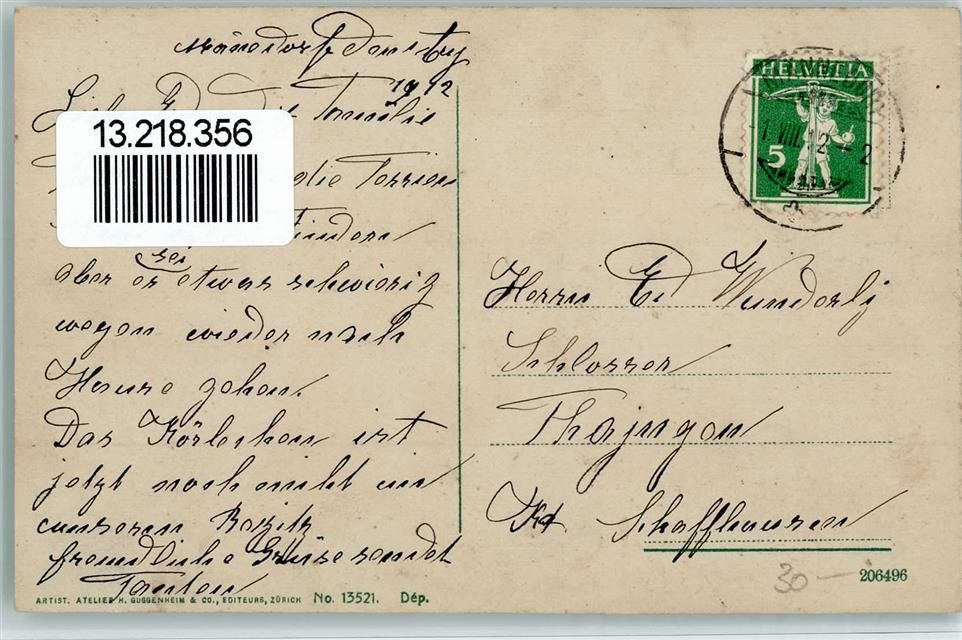 Männedorf Dienstag
1912
Familie
13.218.356
Ferien
Kindern
sei
aber es etwas schwierig
wegen wieder nach
Hause gehen.
Das Körbchen ist
jetzt noch nicht in
unserem Besitz
freundliche Grüsse sendet
HELVETIA
5
VIII. 12
2
Herrn Ed Wunderli
Schlosser
Thajngen
Kt. Schaffhausen
30 —
206496
ARTIST. ATELIER H. GUGGENHEIM & CO., EDITEURS, ZÜRICH No. 13521. Dép.